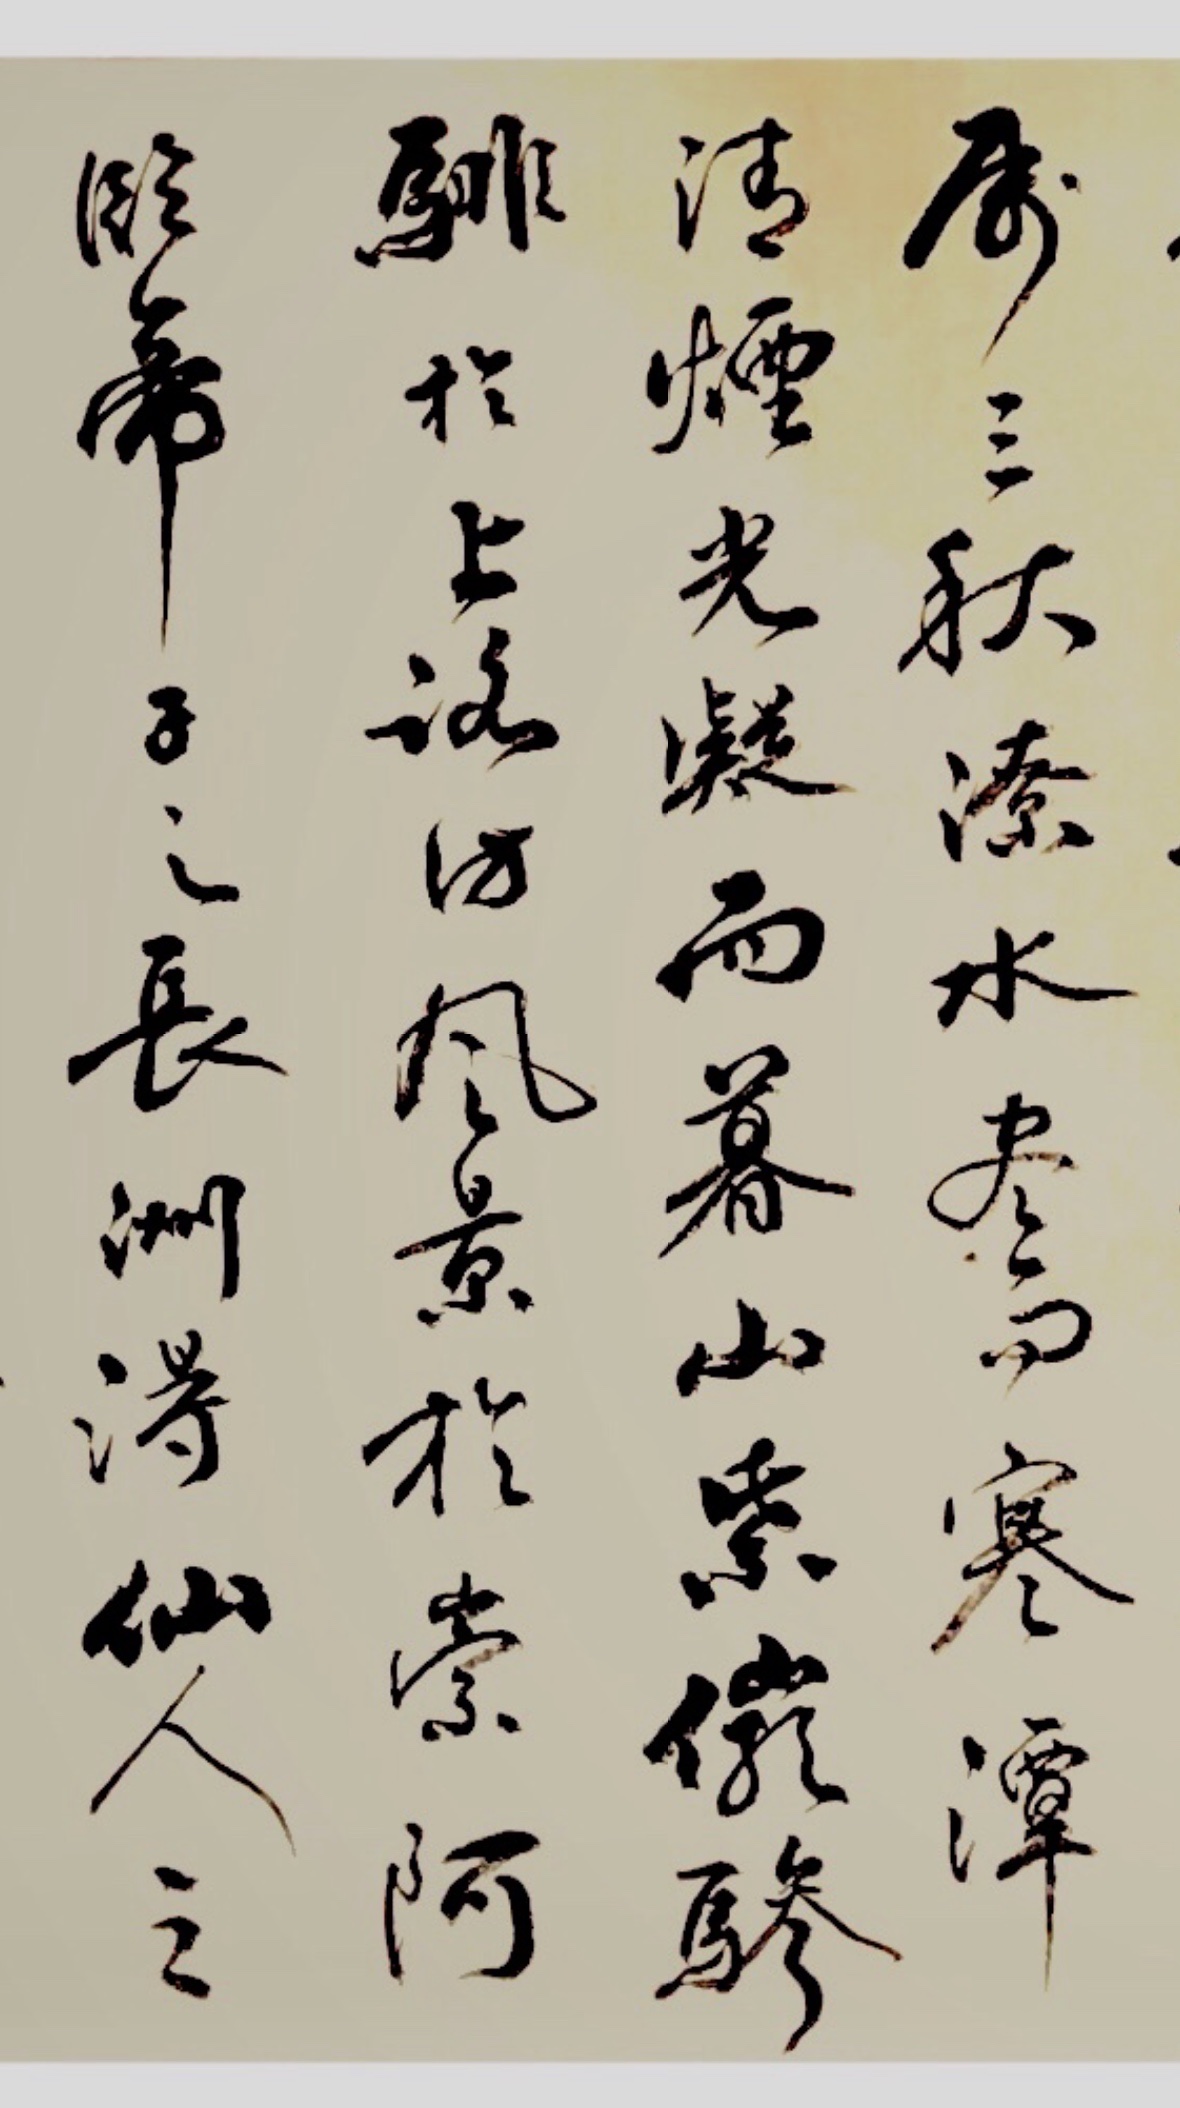 属三秋潦水尽而寒潭
清煙光凝而暮山紫儼驂
騑於上路訪風景於崇阿
臨帝子之長洲得仙人之